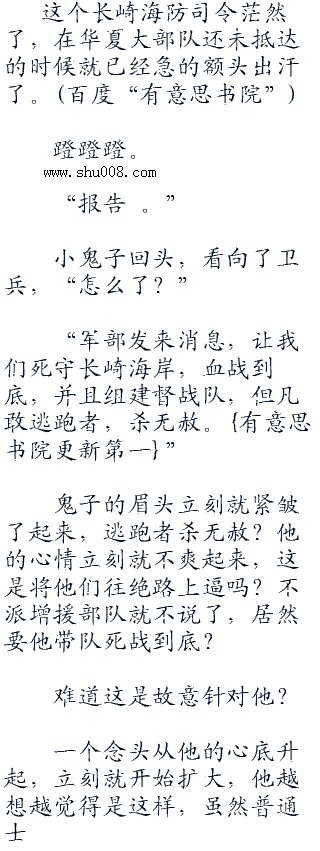 这个长崎海防司令茫然
了，在华夏大部队还未抵达
的时候就已经急的额头出汗
了。(百度“有意思书院”)
蹬蹬蹬。
www.shu008.com
“报告 。”
小鬼子回头，看向了卫
兵，“怎么了？”
“军部发来消息，让我
们死守长崎海岸，血战到
底，并且组建督战队，但凡
敢逃跑者，杀无赦。{有意思
书院更新第一}”
鬼子的眉头立刻就紧皱
了起来，逃跑者杀无赦？他
的心情立刻就不爽起来，这
是将他们往绝路上逼吗？不
派增援部队就不说了，居然
要他带队死战到底？
难道这是故意针对他？
一个念头从他的心底升
起，立刻就开始扩大，他越
想越觉得是这样，虽然普通
士